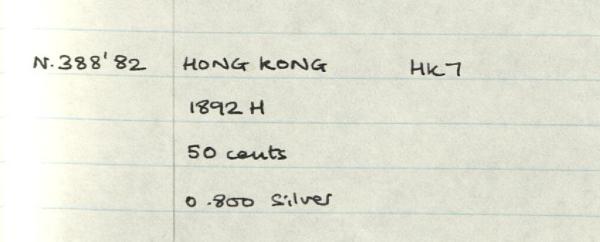 N.388'82 HONG KONG HK7
1892 H
50 cents
0.800 Silver